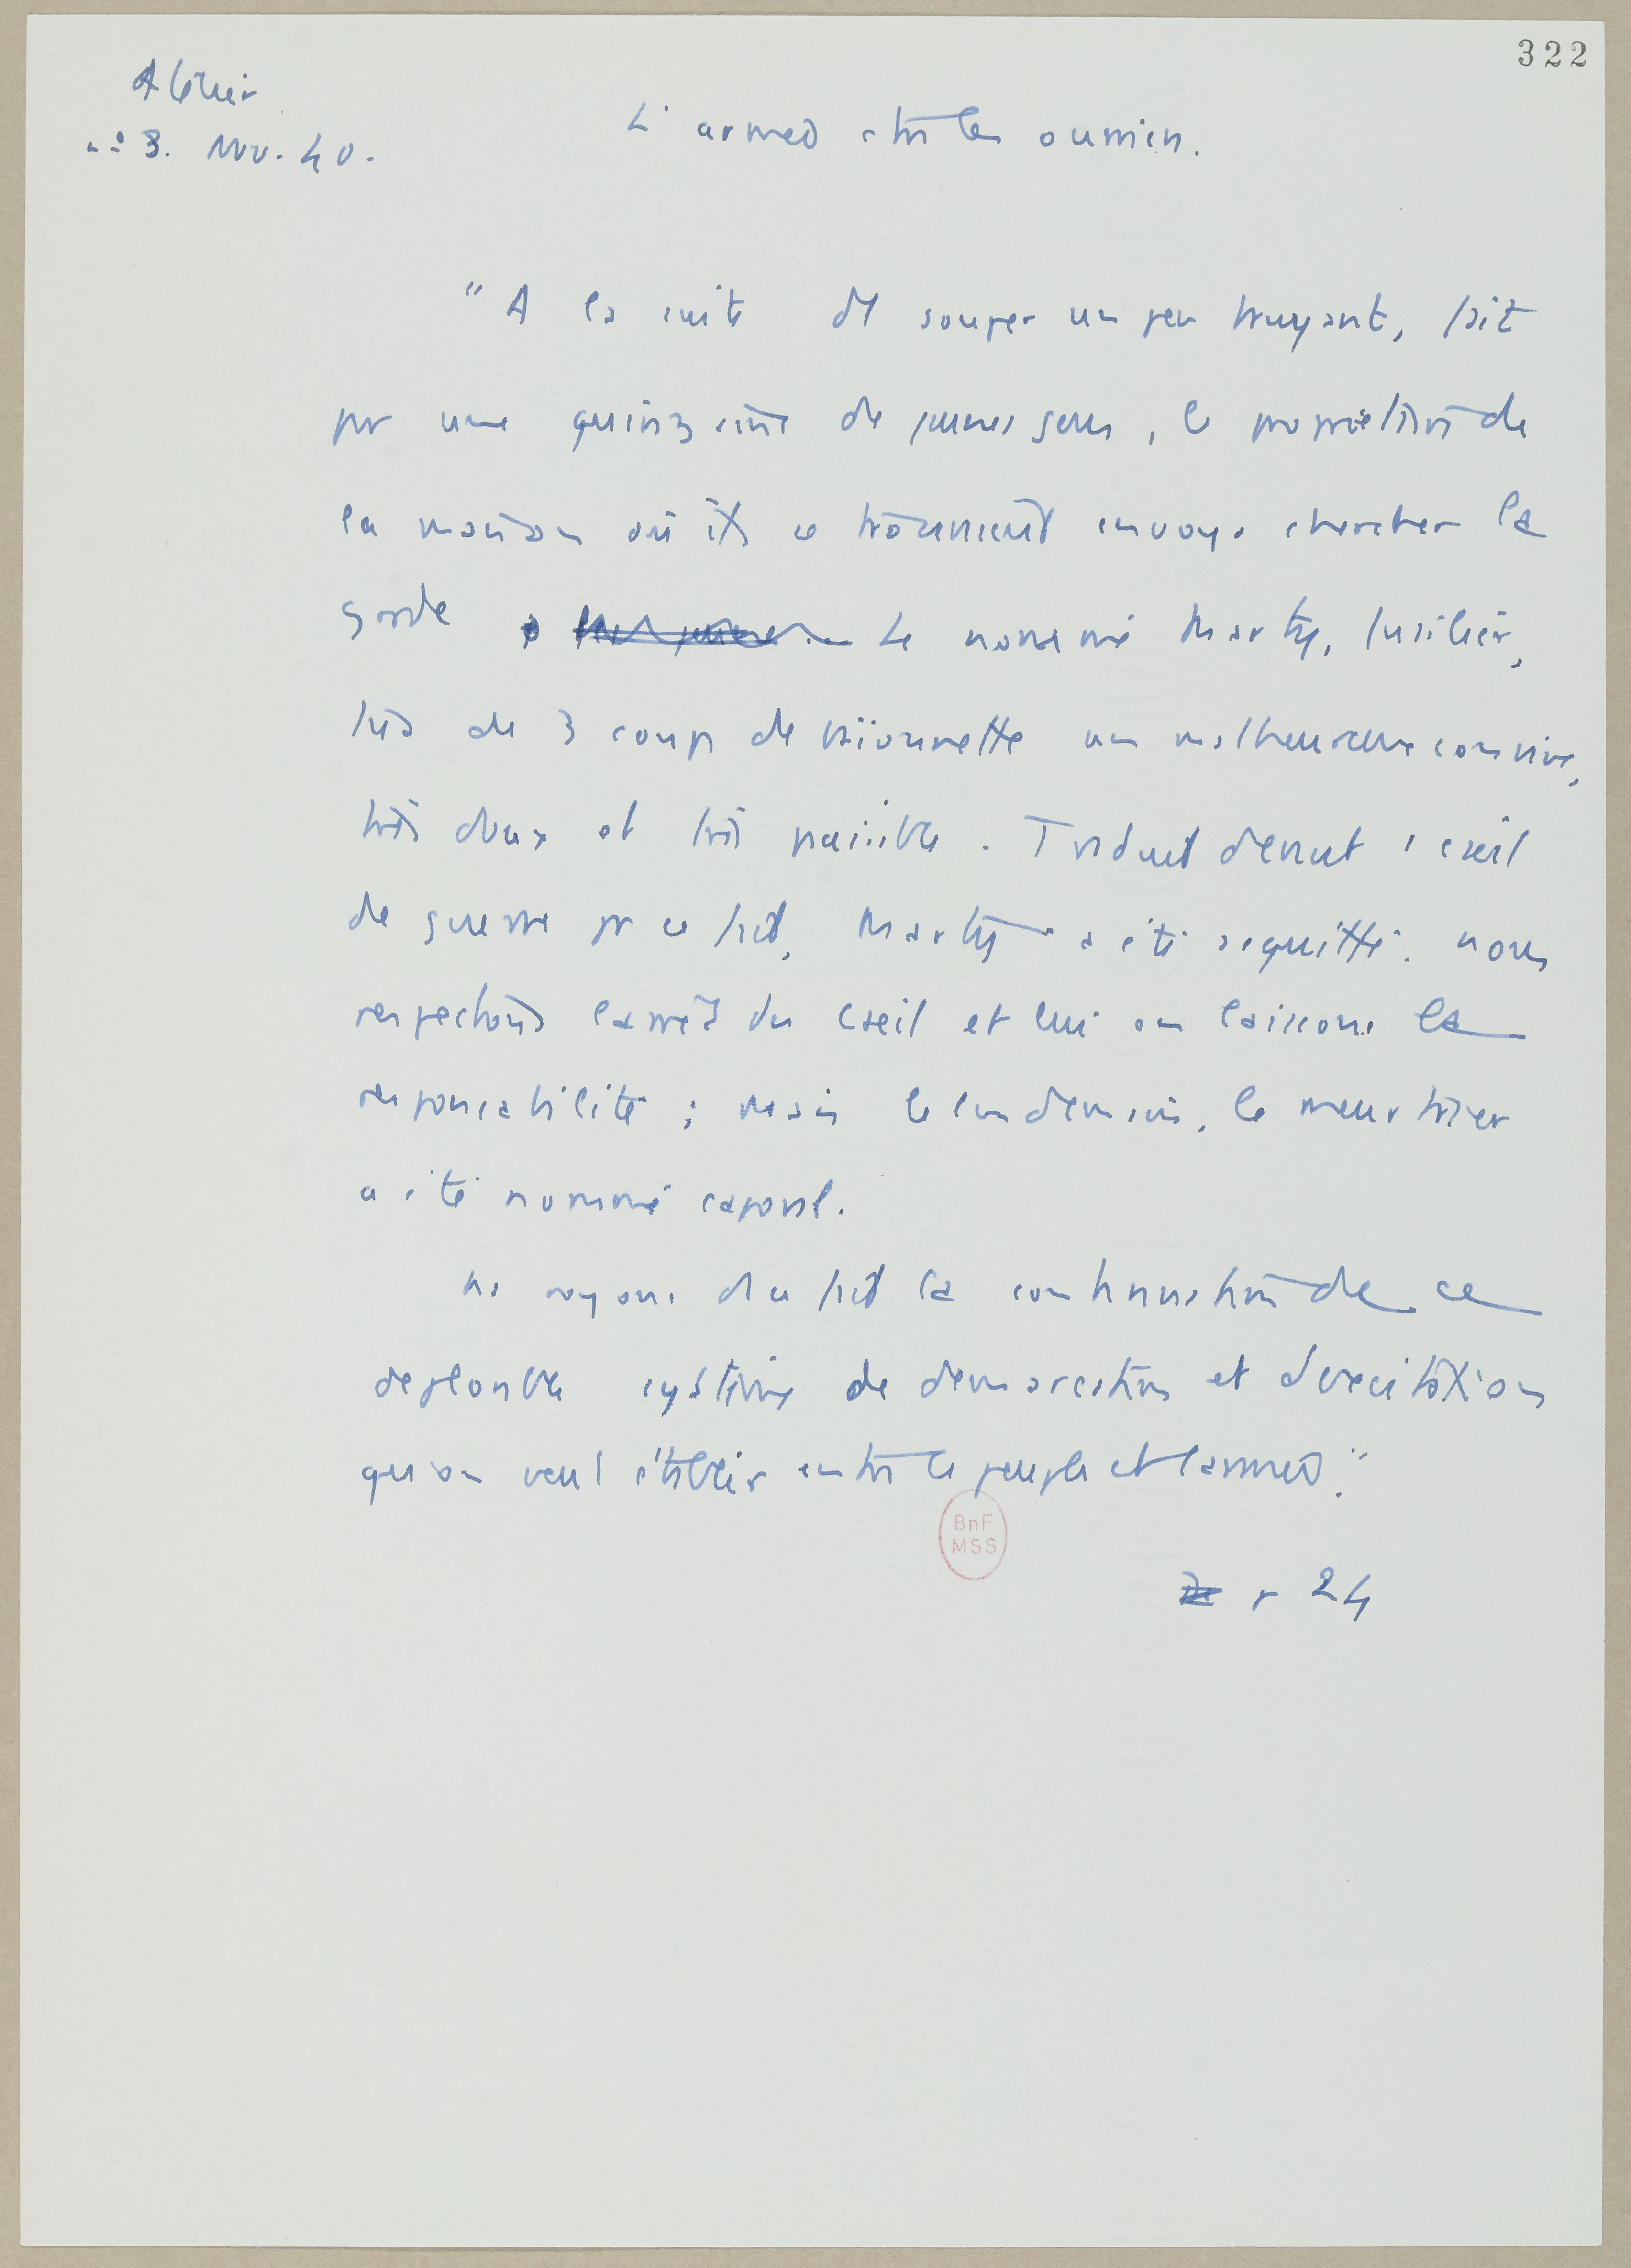 322
Atelier
n° 3. Nov. 40.
L'armée ctre les ouvriers.
"A la suite d'1 souper un peu bruyant, fait
pr une quinzaine de jeunes gens, le propriétaire de
la maison où ils se trouvaient envoya chercher la
garde. Le nommé Marty, fusilier,
tua de 3 coups de baïonnette un malheureux convive,
très doux et très paisible. Traduit devant 1 cseil
de guerre pr ce fait, Marty a été acquitté. nous
respectons l'arrêt du Cseil et lui en laissons la
responsabilité ; mais le lendemain, le meurtrier
a été nommé caporal.
Ns voyons ds ce fait la continuation de ce
déplorable système de démarcation et d'excitation
qu'on veut établir entre le peuple et l'armée."
BnF
MSS
p 24